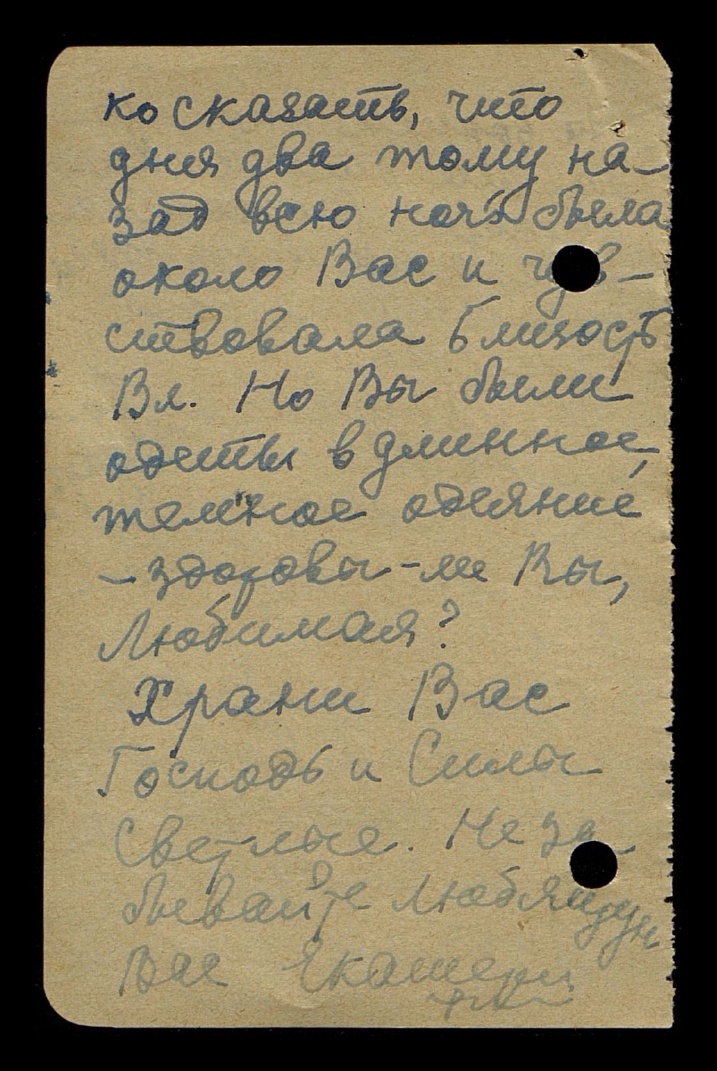 ко сказать, что
дня два тому на-
зад всю ночь была
около Вас и чув-
ствовала близость
Вл. Но Вы были
одеты в длинное,
темное одеяние
- здоровы-ли Вы,
Любимая?
Храни Вас
Господь и Силы
Светлые. Не за-
бывайте любящую
Вас